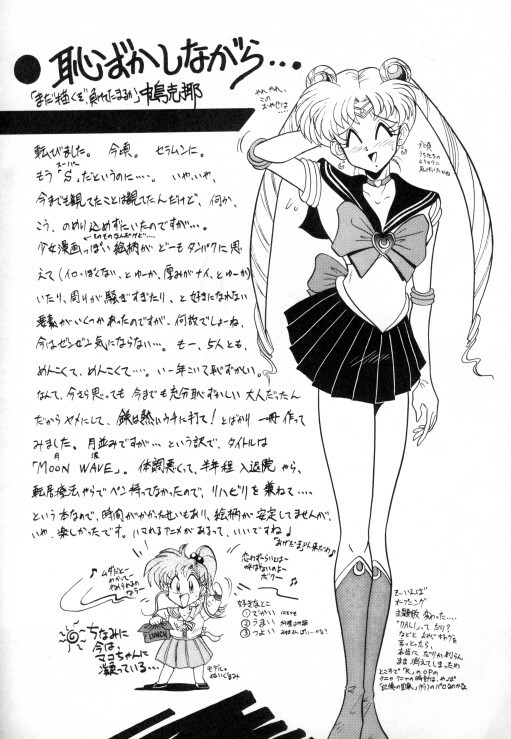 ● 恥ずかしながら…
「まだ描くぞ、負けてたまるか」中島克那
転びました。 今頃。 セラムンに。
もう「S」だというのに…。 いやいや、
スーパー
今までも観てたことは観てたんだけど、何か、
こう、のめり込めずにいたのですが…。
少女漫画っぽい絵柄がどーもタンパクに思
えて(イロっぽくない、とゆーか、厚みがナイ、とゆーか)
いたり、周りが騒ぎすぎたり、と好きになれない
要素がいくつかあったのですが、何故でしょーね、
今はゼンゼン気にならない…。 もー、5人とも、
めんこくて、めんこくて…。 いー年こいて恥ずかしい。
なんて、今さら思っても今までも充分恥ずかしい大人だったん
だからヤメにして、鉄は熱いウチに打て!とばかり一冊作って
みました。月並みですが…という訳で、タイトルは
月 波
「MOON WAVE」。 体調悪くて、半年程入退院やら、
転居療法やらでペン持ってなかったので、リハビリを兼ねて…
という本なので、時間がかかったせいもあり、絵柄が安定してませんが、
いや、楽しかったです。ハマれるアニメがあるって、いいですね♪
やれやれ、
この
おやじは…
ムダだと
わかって
やめられるの
なら
恋わずらいとは
呼ばないのよー
好きなとこ
① でかい
② うまい
③ つよい
LUNCH
ちなみに
今は、
マコちゃんに
凝っている…
モデル。
ぬいぐるみ
そーいえば
オープニング
主題歌 変わった…
「DALI」って ダリ?
などと おやじギャグを
言っとったら、
本当に ダリィムーンさん
まま 消えてしまった
ところで「R」のOPの